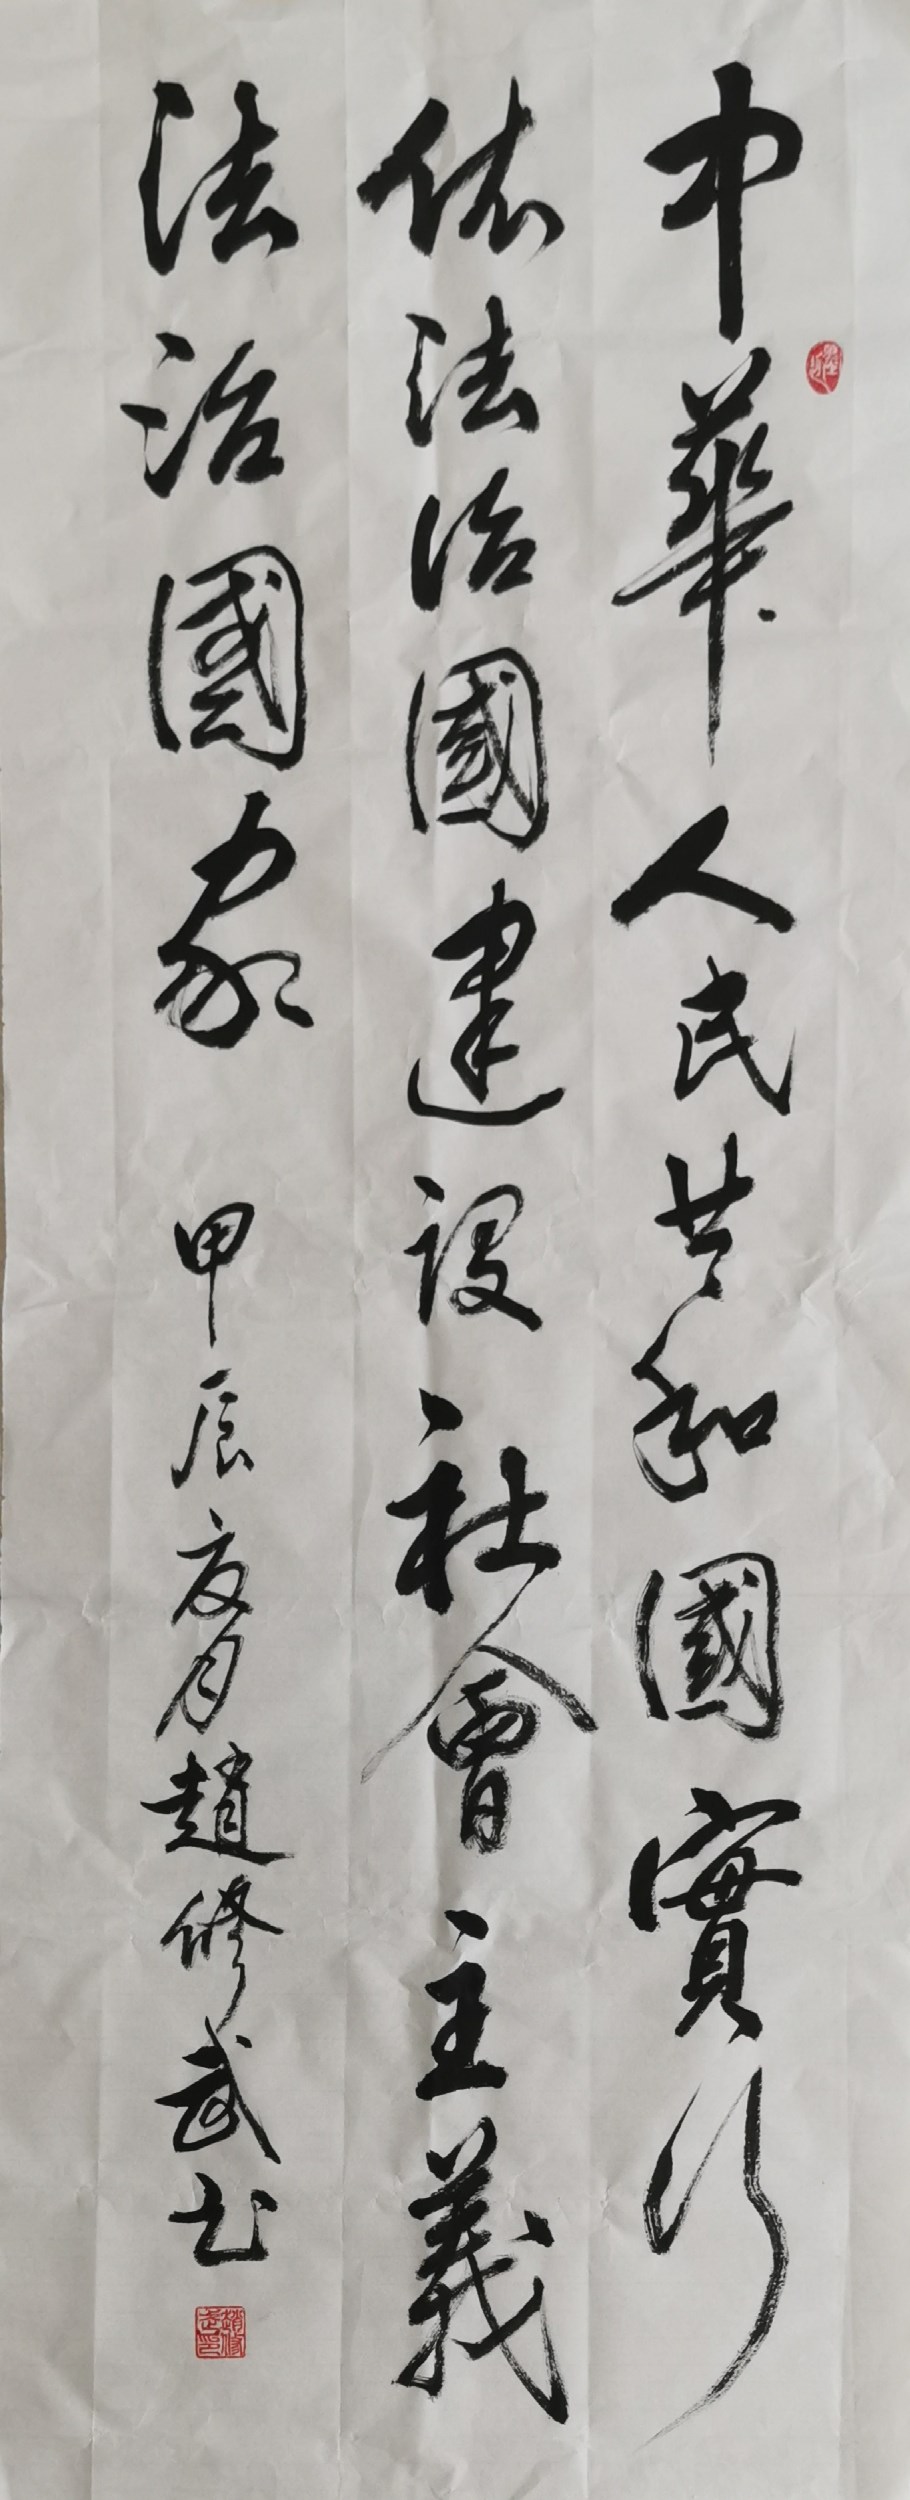 中華人民共和國實行
依法治國建設社會主義
法治國家 甲辰夏月趙修武书
趙修武印